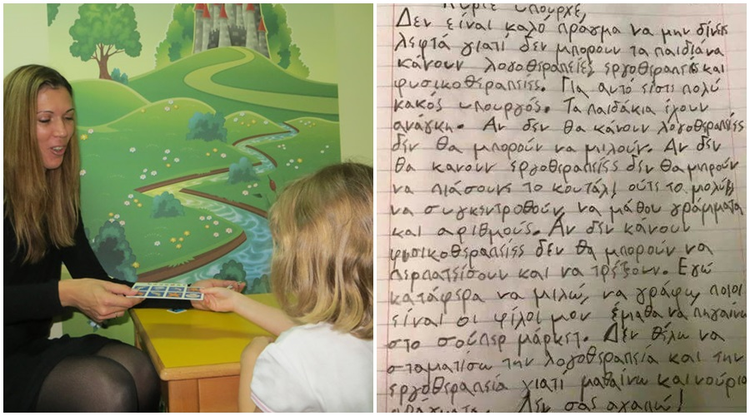 Κύριε υπουργέ,
Δεν είναι καλό πράγμα να μην δίνεις
λεφτά γιατί δεν μπορούν τα παιδιά να
κάνουν λογοθεραπείες, εργοθεραπείες και
φυσικοθεραπείες. Για αυτό είστι πολύ
κακός υπουργός. Τα παιδάκια έχουν
ανάγκη. Αν δεν θα κάνουν λογοθεραπείες
δεν θα μπορούν να μιλούν. Αν δεν
θα κανουν εργοθεραπείες δεν θα μπορούν
να πιάσουνε το κουτάλι, ούτε το μολύβι
να συγκεντροθούν, να μάθου γράμματα
και αριθμούς. Αν δεν κάνουν
φυσικοθεραπείες δεν θα μπορούν να
περπατείσουν και να τρέξουν. Εγώ
κατάφερα να μιλώ, να γράφω, ποιοι
είναι οι φίλοι μου έμαθα να πηγαίνω
στο σούπερ μάρκετ. Δεν θέλω να
σταματίσω την λογοθεραπεια και την
εργοθεραπειά γιατι μαθαίνω καινούρια
πράγματα. Δεν σας αχαπώ!